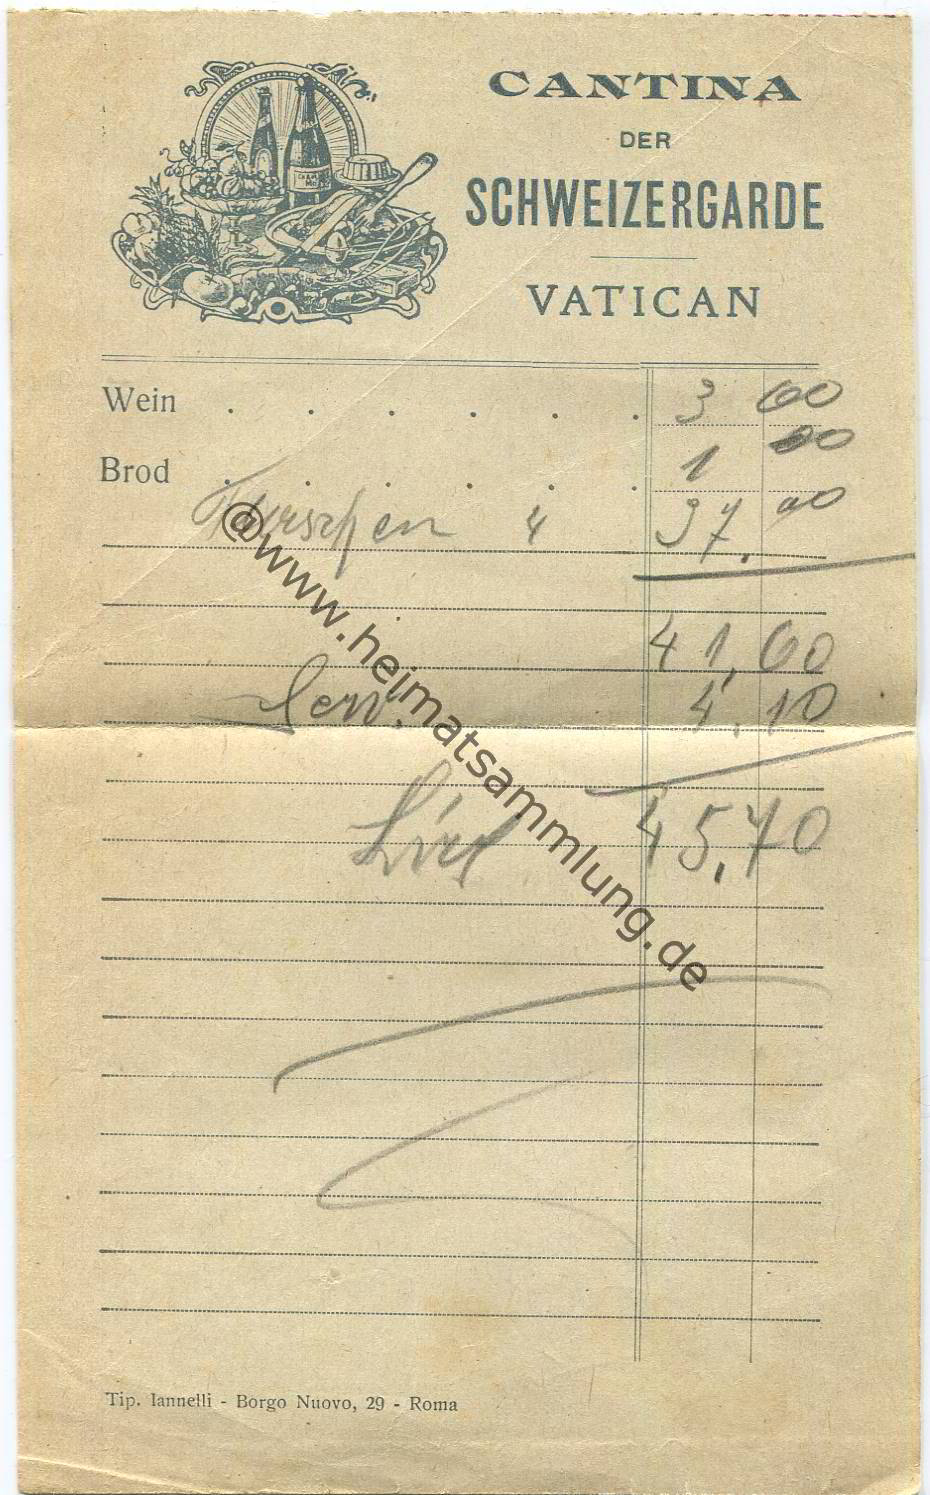 CANTINA
DER
SCHWEIZERGARDE
VATICAN
Wein . . . . . . 3 60
Brod . . . . . . 1 00
4 37. 00
41,60
Serv. 4.10
Lire 45,70
@www.heimatsammlung.de
Tip. Iannelli - Borgo Nuovo, 29 - Roma